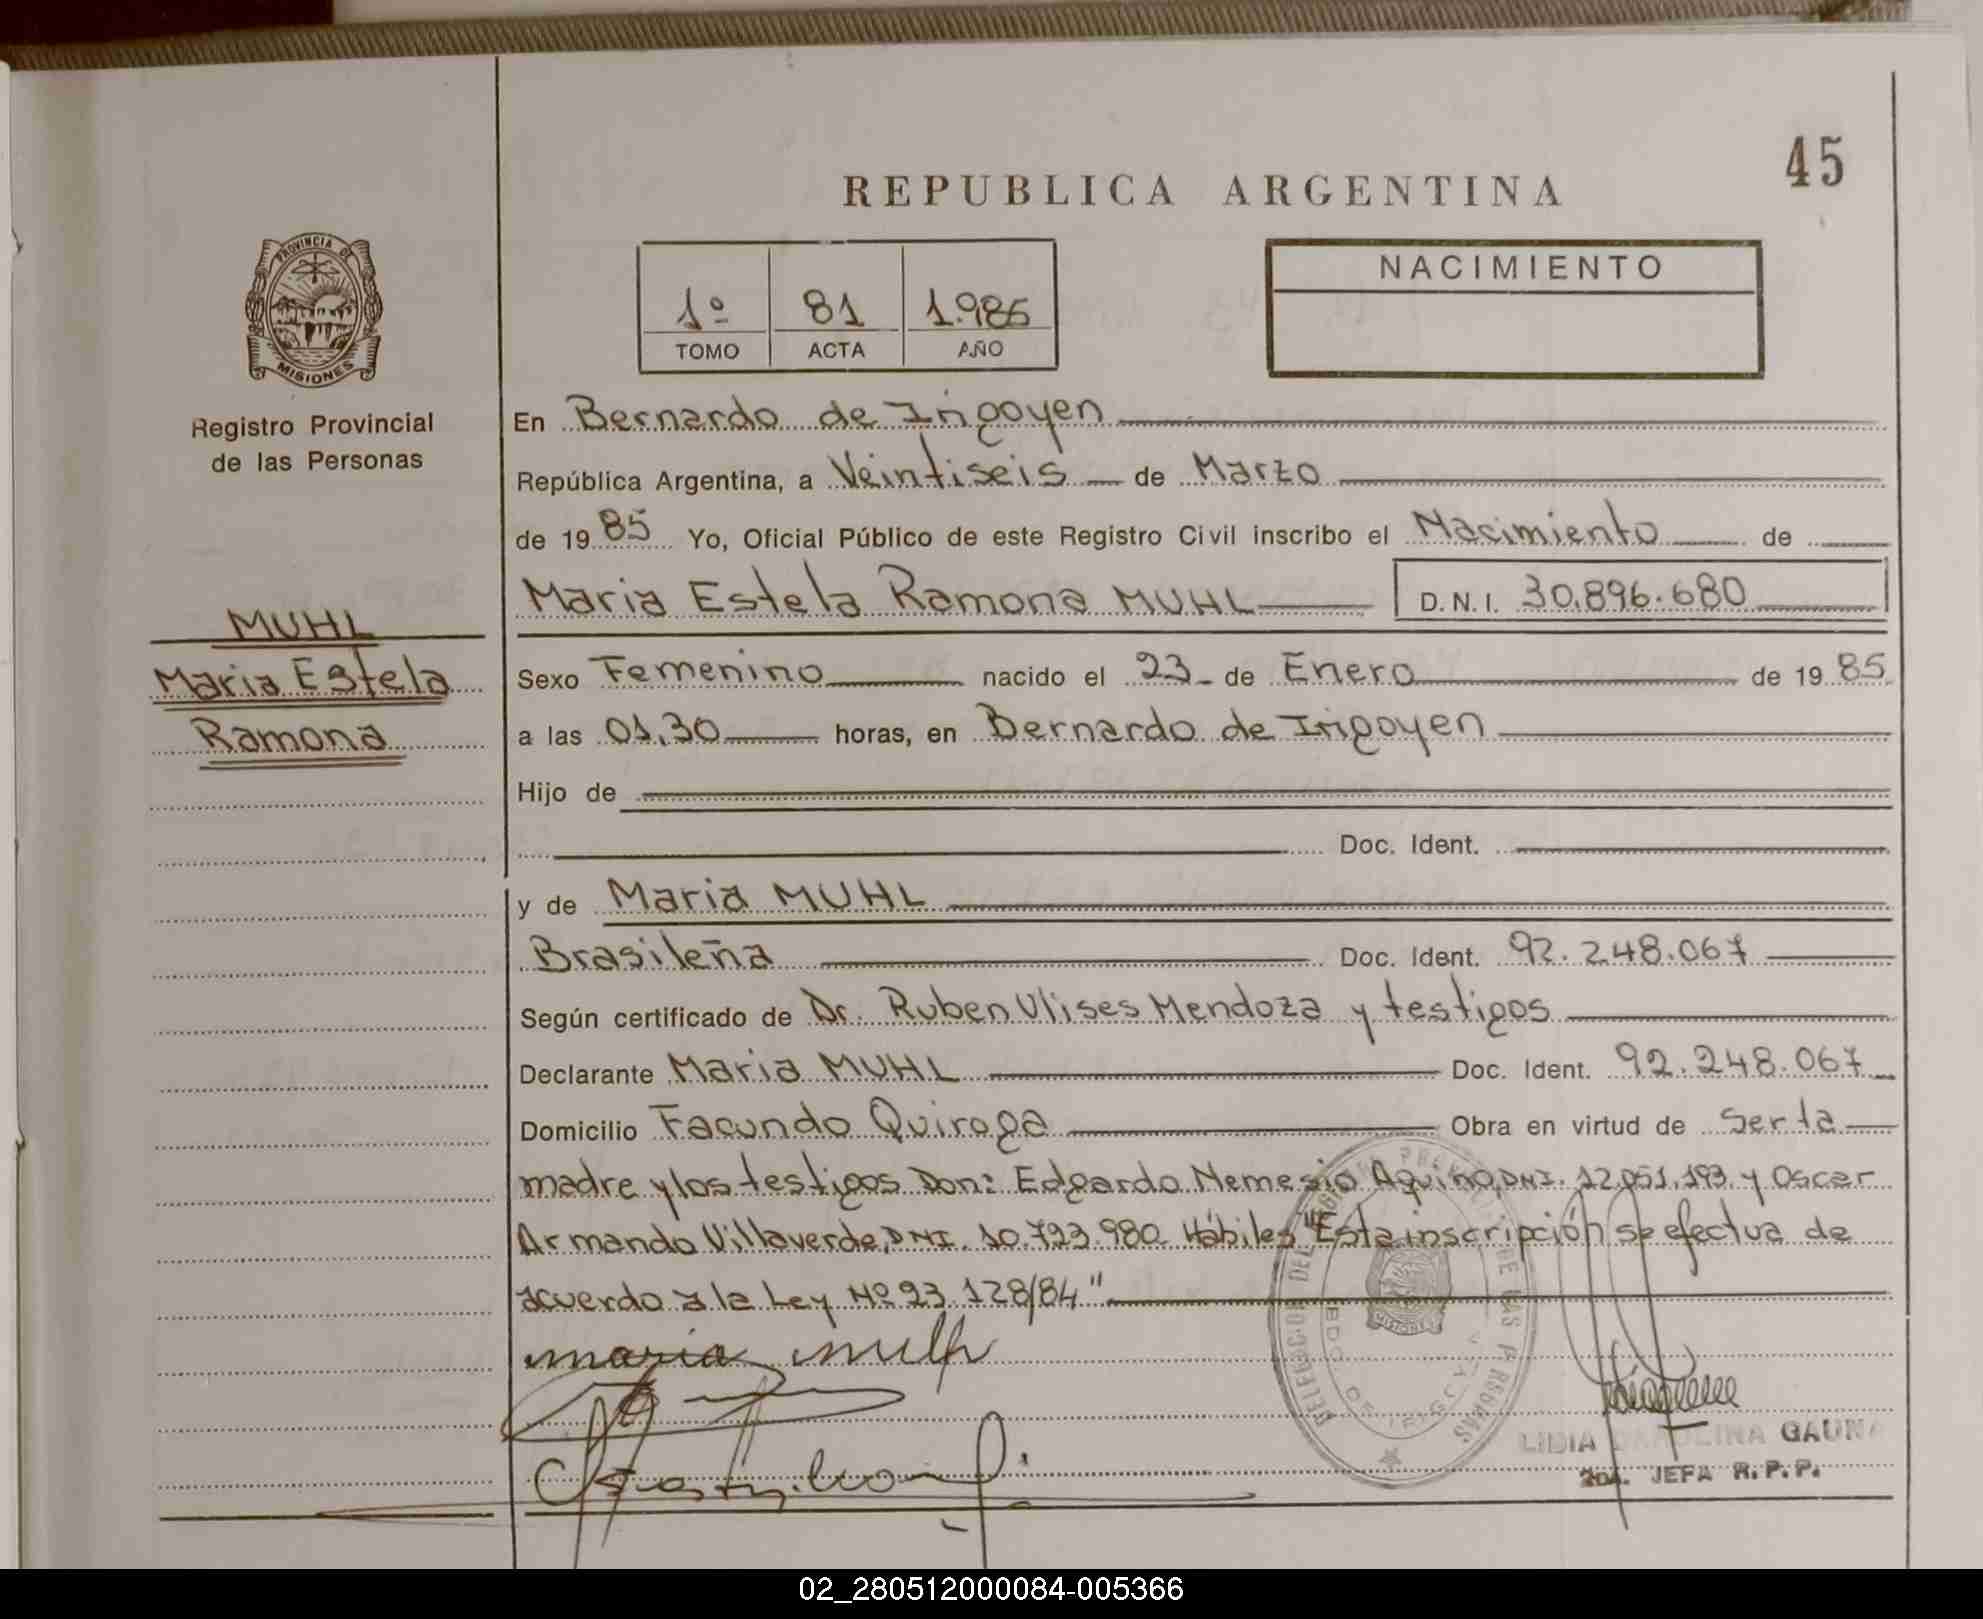 45
REPUBLICA ARGENTINA
PROVINCIA DE
MISIONES
1º 81 1.985
TOMO ACTA AÑO
NACIMIENTO
Registro Provincial
de las Personas
MUHL
Maria Estela
Ramona
En Bernardo de Irigoyen
República Argentina, a Veintiseis de Marzo
de 1985 Yo, Oficial Público de este Registro Civil inscribo el Nacimiento de
Maria Estela Ramona MUHL D.N.I. 30.896.680
Sexo Femenino nacido el 23 de Enero de 1985
a las 01,30 horas, en Bernardo de Irigoyen
Hijo de
Doc. Ident.
y de Maria MUHL
Brasileña Doc. Ident. 92.248.067
Según certificado de Dr. Ruben Ulises Mendoza y testigos
Declarante Maria MUHL Doc. Ident. 92.248.067
Domicilio Facundo Quiroga Obra en virtud de Ser la
madre y los testigos Don: Edgardo Nemesio Aquino, DNI. 12.051.193 y Oscar
Armando Villaverde, DNI. 10.723.980 Hábiles "Esta inscripción se efectua de
acuerdo a la Ley Nº 23 128/84"
maria mulh
LIDIA CAROLINA GAUNA
2da. JEFA R.P.P.
02_280512000084-005366